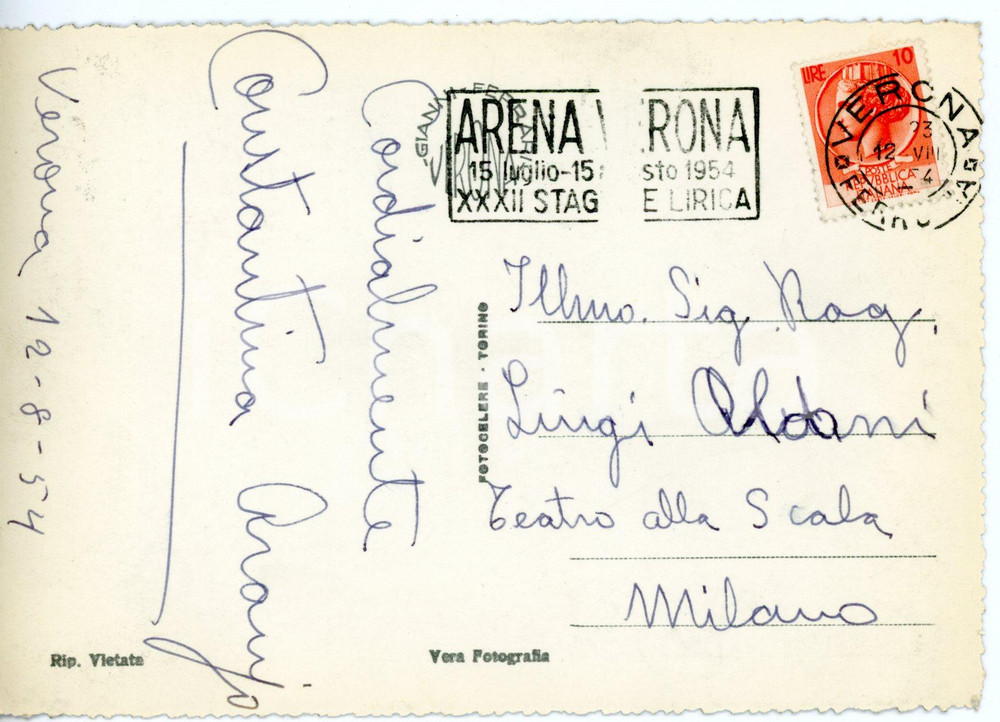 Verona 12-8-54
Cordialmente
Constantina Araujo
ARENA VERONA
15 luglio-15 a sto 1954
XXXII STAG E LIRICA
LIRE 10
POSTE
REPUBBLICA
ITALIANA
VERONA
23
12-VIII
FERROVIA
FOTOCELERE · TORINO
Illmo. Sig. Rag.
Luigi Oldani
Teatro alla Scala
Milano
Rip. Vietata
Vera Fotografia